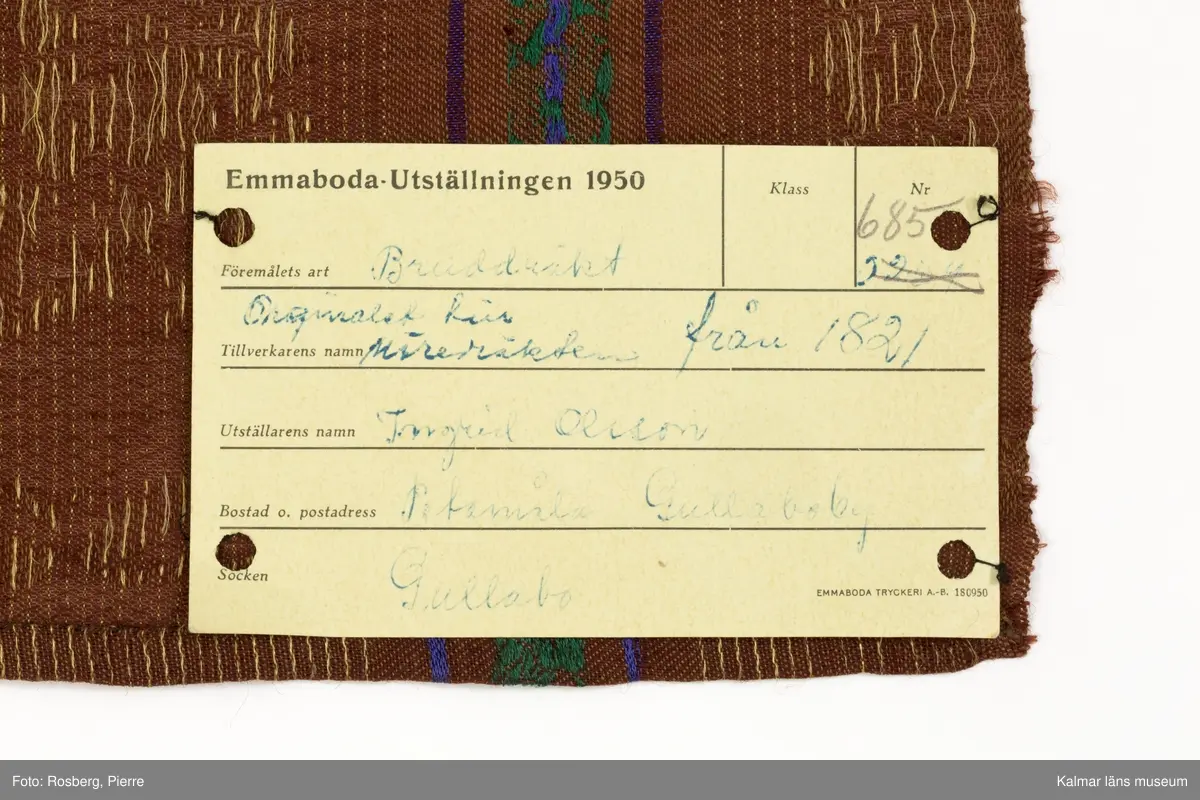 Emmaboda-Utställningen 1950
Klass
Nr
685
Föremålets art Bruddräkt
Orginalet till
Tillverkarens namn Möredräkten från 1821
Utställarens namn Ingrid Olsson
Bostad o. postadress Petamåla Gullaboby
Socken Gullabo
EMMABODA TRYCKERI A.-B. 180950
Foto: Rosberg, Pierre
Kalmar läns museum